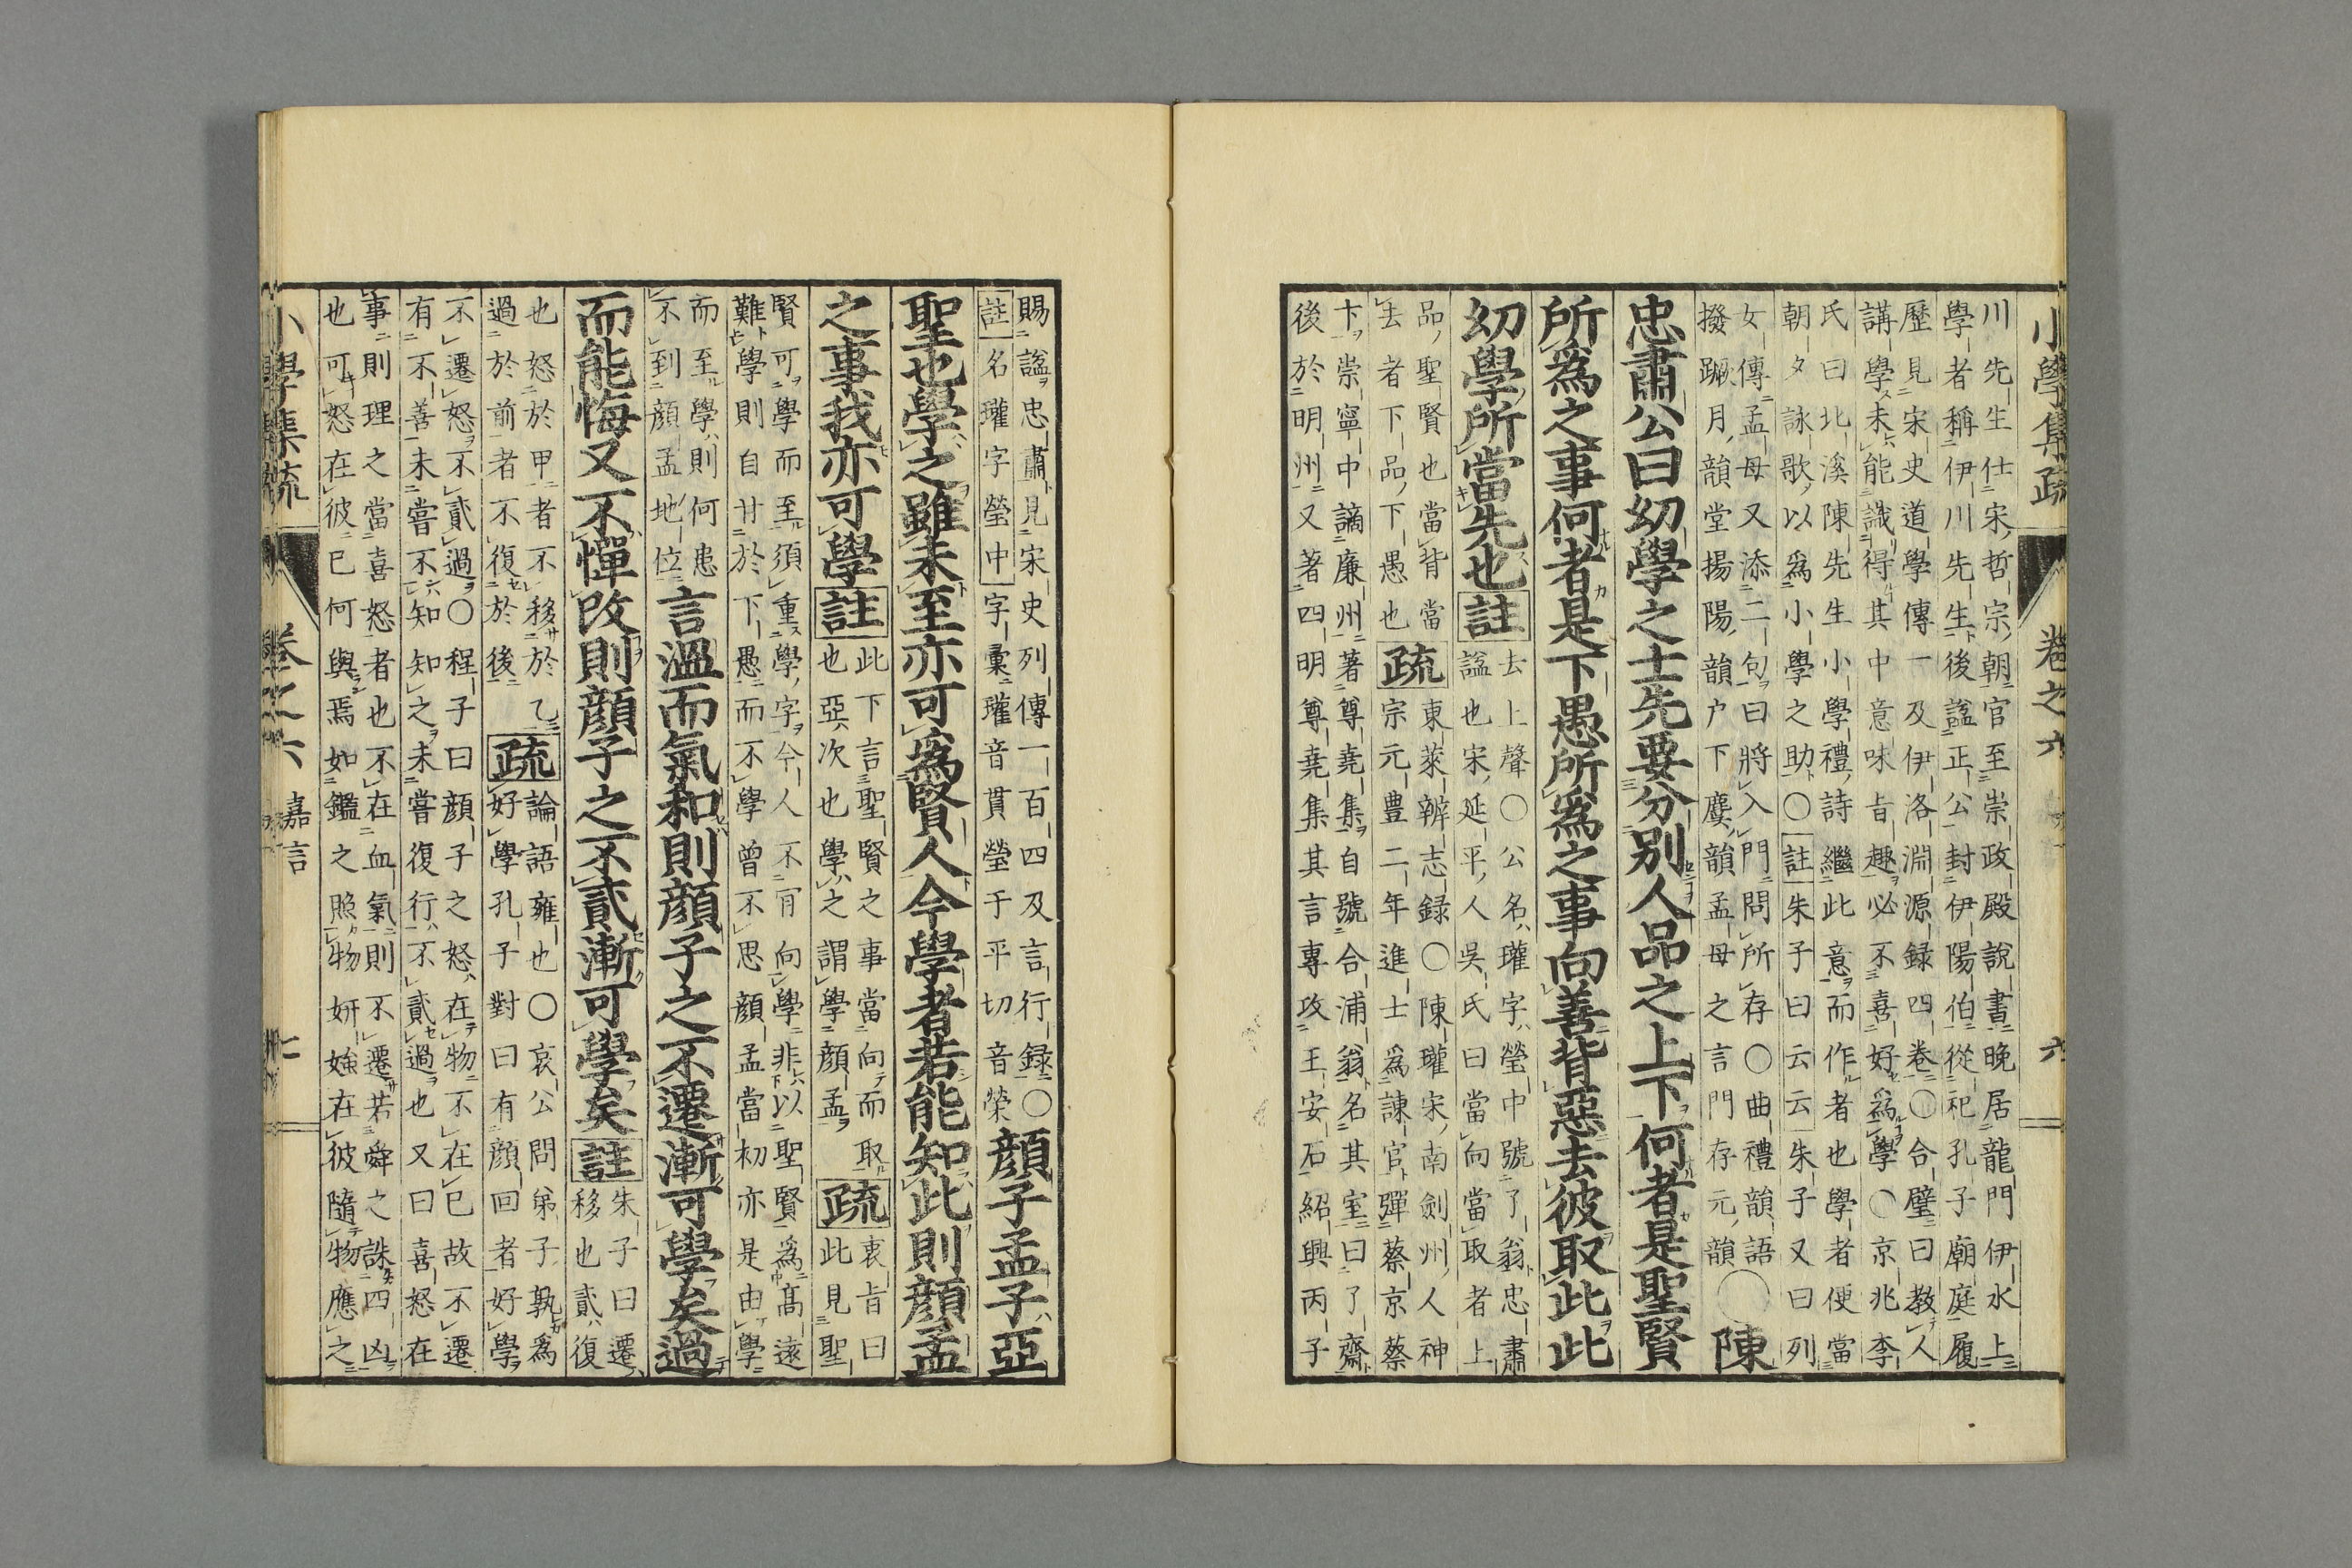 小學集疏　卷之六　六
川先生仕宋哲宗朝官至崇政殿說書晚居龍門伊水上
學者稱伊川先生後謚正公封伊陽伯從祀孔子廟庭履
歷見宋史道學傳一及伊洛淵源録四卷○合璧曰教人
講學未能識得其中意味旨趣必不喜好爲學○京兆李
氏曰北溪陳先生小學禮詩繼此意而作者也學者便當
朝夕詠歌以爲小學之助○註朱子曰云云朱子又曰列
女傳孟母又添二句曰將入門問所存○曲禮韻語
撥蹶月韻堂揚陽韻户下麌韻孟母之言門存元韻
○陳
忠肅公曰幼學之士先要分別人品之上下何者是聖賢
所爲之事何者是下愚所爲之事向善背惡去彼取此此
幼學所當先也註
去上聲○公名瓘字瑩中號了翁忠肅
謚也宋延平人吳氏曰當向當取者上
品聖賢也當背當
去者下品下愚也
疏
東萊辨志録○陳瓘宋南劍州人神
宗元豊二年進士爲諫官彈蔡京蔡
卞崇寧中謫廉州著尊堯集自號合浦翁名其室曰了齋
後於明州又著四明尊堯集其言專攻王安石紹興丙子
賜謚忠肅見宋史列傳一百四及言行録○
註名瓘字瑩中字彙瓘音貫瑩于平切音榮
顏子孟子亞
聖也學之雖未至亦可爲賢人今學者若能知此則顏孟
之事我亦可學註
此下言聖賢之事當向而取
也亞次也學之謂學顏孟
疏
衷旨曰
此見聖
賢可學而至須重學字今人不肯向學非以聖賢爲髙遠
難學則自甘於下愚而不學曾不思顏孟當初亦是由學
而至學則何患
不到顏孟地位
言溫而氣和則顏子之不遷漸可學矣過
而能悔又不憚改則顏子之不貳漸可學矣註
朱子曰遷
移也貳復
也怒於甲者不移於乙
過於前者不復於後
疏
論語雍也○哀公問弟子孰爲
好學孔子對曰有顏回者好學
不遷怒不貳過○程子曰顏子之怒在物不在已故不遷
有不善未嘗不知知之未嘗復行不貳過也又曰喜怒在
事則理之當喜怒者也不在血氣則不遷若舜之誅四凶
也可怒在彼已何與焉如鑑之照物妍媸在彼隨物應之
小學集疏　卷之六　嘉言　七